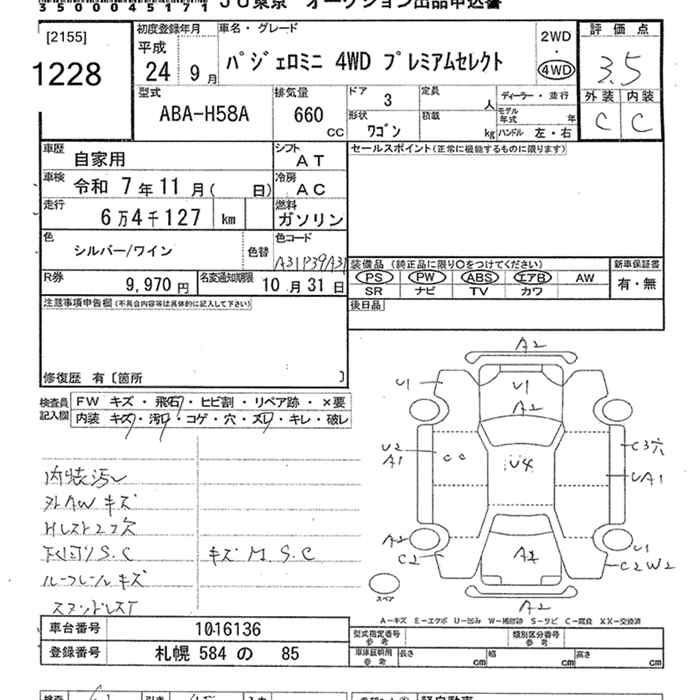 350004517 1
JU東京 オークション出品申込書
[2155]
1228
初度登録年月
平成
24 9月
車名・グレード
パジェロミニ 4WD プレミアムセレクト
2WD
・
4WD
評価点
3.5
外装 内装
C C
型式
ABA-H58A
排気量
660
CC
ドア 3
形状
ワゴン
定員
人
積載
kg
ディーラー・並行
モデル年式 年
ハンドル 左・右
車歴
自家用
シフト
AT
車検
令和 7年11月( 日)
冷房
AC
走行
6万4千127 km
燃料
ガソリン
色
シルバー/ワイン
色替
色コード
A31P39A31
R券
9,970円
名変通知期限
10月31日
セールスポイント(正常に機能するものに限ります)
装備品(純正品に限り〇をつけてください)
PS PW ABS エアB AW
SR ナビ TV カワ
新車保証書
有・無
後日品
注意事項申告欄(不具合内容等は具体的に記入して下さい)
修復歴 有〔箇所 〕
検査員記入欄
FW キズ・飛石・ヒビ割・リペア跡・×要
内装 キズ・汚れ・コゲ・穴・スレ・キレ・破レ
内装汚レ
外AWキズ
下廻りS.C
キズ M.S.C
ルーフレールキズ
A2
U1
U1
A2
U2
A1
CC
U4
C3穴
UA1
A2
C2
U1
C2W2
A2
スペア
A-キズ E-エクボ U-凹み W-補修跡 S-サビ C-腐食 XX-交換済
車台番号
1016136
登録番号
札幌 584 の 85
型式指定番号
参考
類別区分番号
参考
車庫証明用
参考
長さ cm
幅 cm
高さ cm
軽自動車